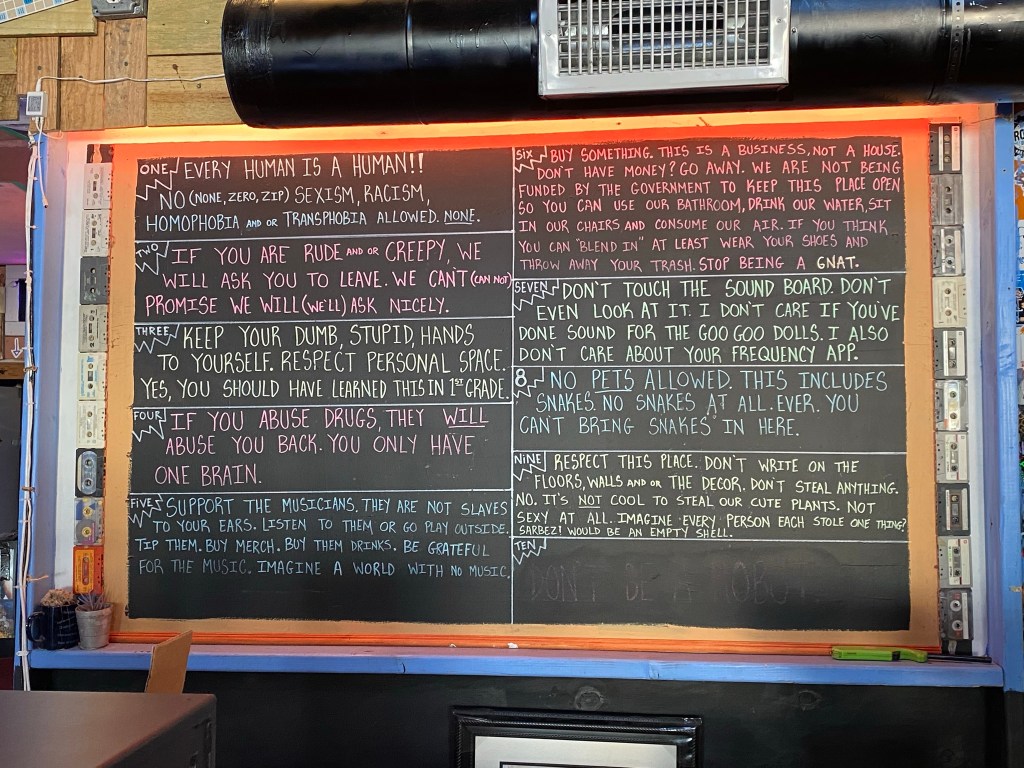 ONE
EVERY HUMAN IS A HUMAN!!
NO (NONE, ZERO, ZIP) SEXISM, RACISM,
HOMOPHOBIA AND OR TRANSPHOBIA ALLOWED. NONE.
TWO
IF YOU ARE RUDE AND OR CREEPY, WE
WILL ASK YOU TO LEAVE. WE CAN'T (CAN NOT)
PROMISE WE WILL (WE'LL) ASK NICELY.
THREE
KEEP YOUR DUMB, STUPID, HANDS
TO YOURSELF. RESPECT PERSONAL SPACE.
YES, YOU SHOULD HAVE LEARNED THIS IN 1ST GRADE.
FOUR
IF YOU ABUSE DRUGS, THEY WILL
ABUSE YOU BACK. YOU ONLY HAVE
ONE BRAIN.
FIVE
SUPPORT THE MUSICIANS. THEY ARE NOT SLAVES
TO YOUR EARS. LISTEN TO THEM OR GO PLAY OUTSIDE.
TIP THEM. BUY MERCH. BUY THEM DRINKS. BE GRATEFUL
FOR THE MUSIC. IMAGINE A WORLD WITH NO MUSIC.
SIX
BUY SOMETHING. THIS IS A BUSINESS, NOT A HOUSE.
DON'T HAVE MONEY? GO AWAY. WE ARE NOT BEING
FUNDED BY THE GOVERNMENT TO KEEP THIS PLACE OPEN
SO YOU CAN USE OUR BATHROOM, DRINK OUR WATER, SIT
IN OUR CHAIRS AND CONSUME OUR AIR. IF YOU THINK
YOU CAN "BLEND IN" AT LEAST WEAR YOUR SHOES AND
THROW AWAY YOUR TRASH. STOP BEING A GNAT.
SEVEN
DON'T TOUCH THE SOUND BOARD. DON'T
EVEN LOOK AT IT. I DON'T CARE IF YOU'VE
DONE SOUND FOR THE GOO GOO DOLLS. I ALSO
DON'T CARE ABOUT YOUR FREQUENCY APP.
8
NO PETS ALLOWED. THIS INCLUDES
SNAKES. NO SNAKES AT ALL. EVER. YOU
CAN'T BRING SNAKES IN HERE.
NINE
RESPECT THIS PLACE. DON'T WRITE ON THE
FLOORS, WALLS AND OR THE DECOR. DON'T STEAL ANYTHING.
NO. IT'S NOT COOL TO STEAL OUR CUTE PLANTS. NOT
SEXY AT ALL. IMAGINE EVERY PERSON EACH STOLE ONE THING?
SARBEZ! WOULD BE AN EMPTY SHELL.
TEN
DON'T BE A ROBOT